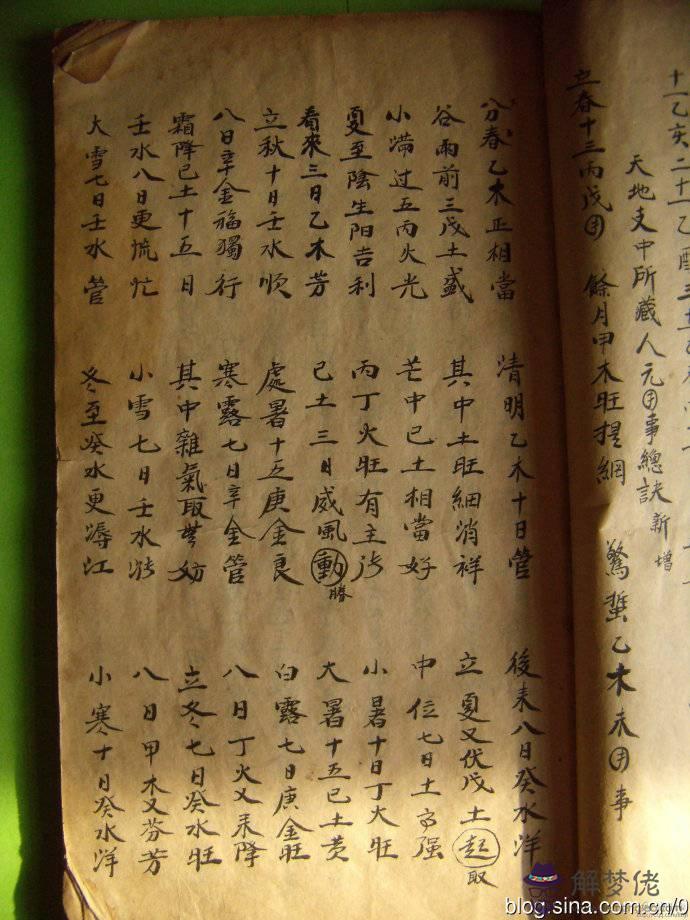 十一乙亥二十一乙酉三
天地支中所藏人元用事總訣 新增
立春十三丙戊用 餘月甲木旺提綱 驚蟄乙木未用事
分春乙木正相當 清明乙木十日管 後来八日癸水洋
谷雨前三戊土盛 其中土旺細消祥 立夏又伏戊土起取
小滿过五丙火光 芒中已土相當好 中位七日土高强
夏至陰生阳吉利 丙丁火旺有主 小暑十日丁火旺
看來三日乙木芳 已土三日威風動勝 大暑十五已土黄
立秋十日壬水順 處暑十五庚金良 白露七日庚金旺
八日辛金福獨行 寒露七日辛金管 八日丁火又来降
霜降已土十五日 其中雜氣取無妨 立冬七日癸水旺
壬水八日更慌忙 小雪七日壬水 八日甲木又芬芳
大雪七日壬水管 冬至癸水更江 小寒十日癸水洋
解梦佬
blog.sina.com.cn/0